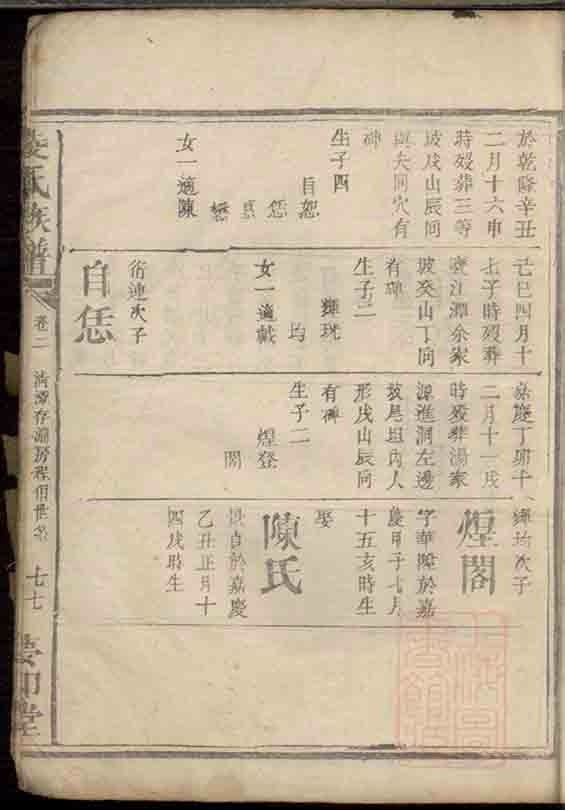 於乾隆辛丑
二月十六申
時歿葬三等
坡戌山辰向
與夫同穴有
碑
生子四
自恕
恁
女一適陳
己巳四月十
七子時歿葬
壺江潭余家
坡癸山丁向
有碑
生子二
輝珖
均
女一適戴
衛連次子
自恁
嘉慶丁卯十
二月十一戌
時歿葬湯家
源進洞左邊
坡尾坦內人
形戌山辰向
有碑
生子二
煌登
閣
輝均次子
煌閣
字華 於嘉
慶甲子七月
十五亥時生
娶
陳氏
自於嘉慶
乙丑正月十
四戌時生
氏族譜
卷二
七七